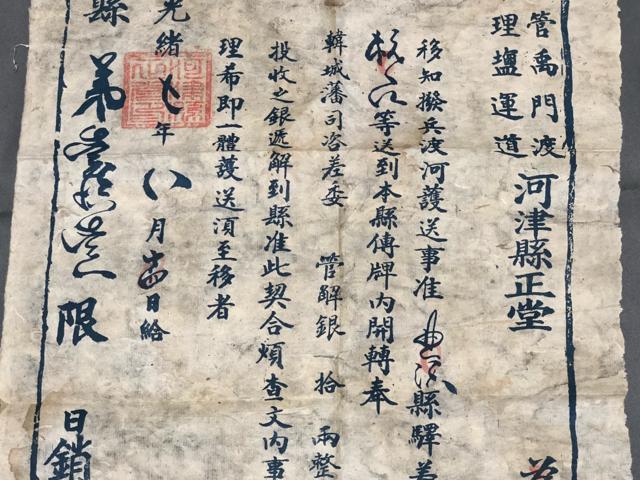 管禹門渡
理鹽運道
河津縣正堂
移知撥兵渡河護送事准
縣驛
等送到本縣傳牌內開轉奉
韓城藩司咨差委 管解銀 拾 兩整
投收之銀遞解到縣准此契合煩查文內事
理希即一體護送須至移者
光緒七年八月 日給
縣 第 限
日銷